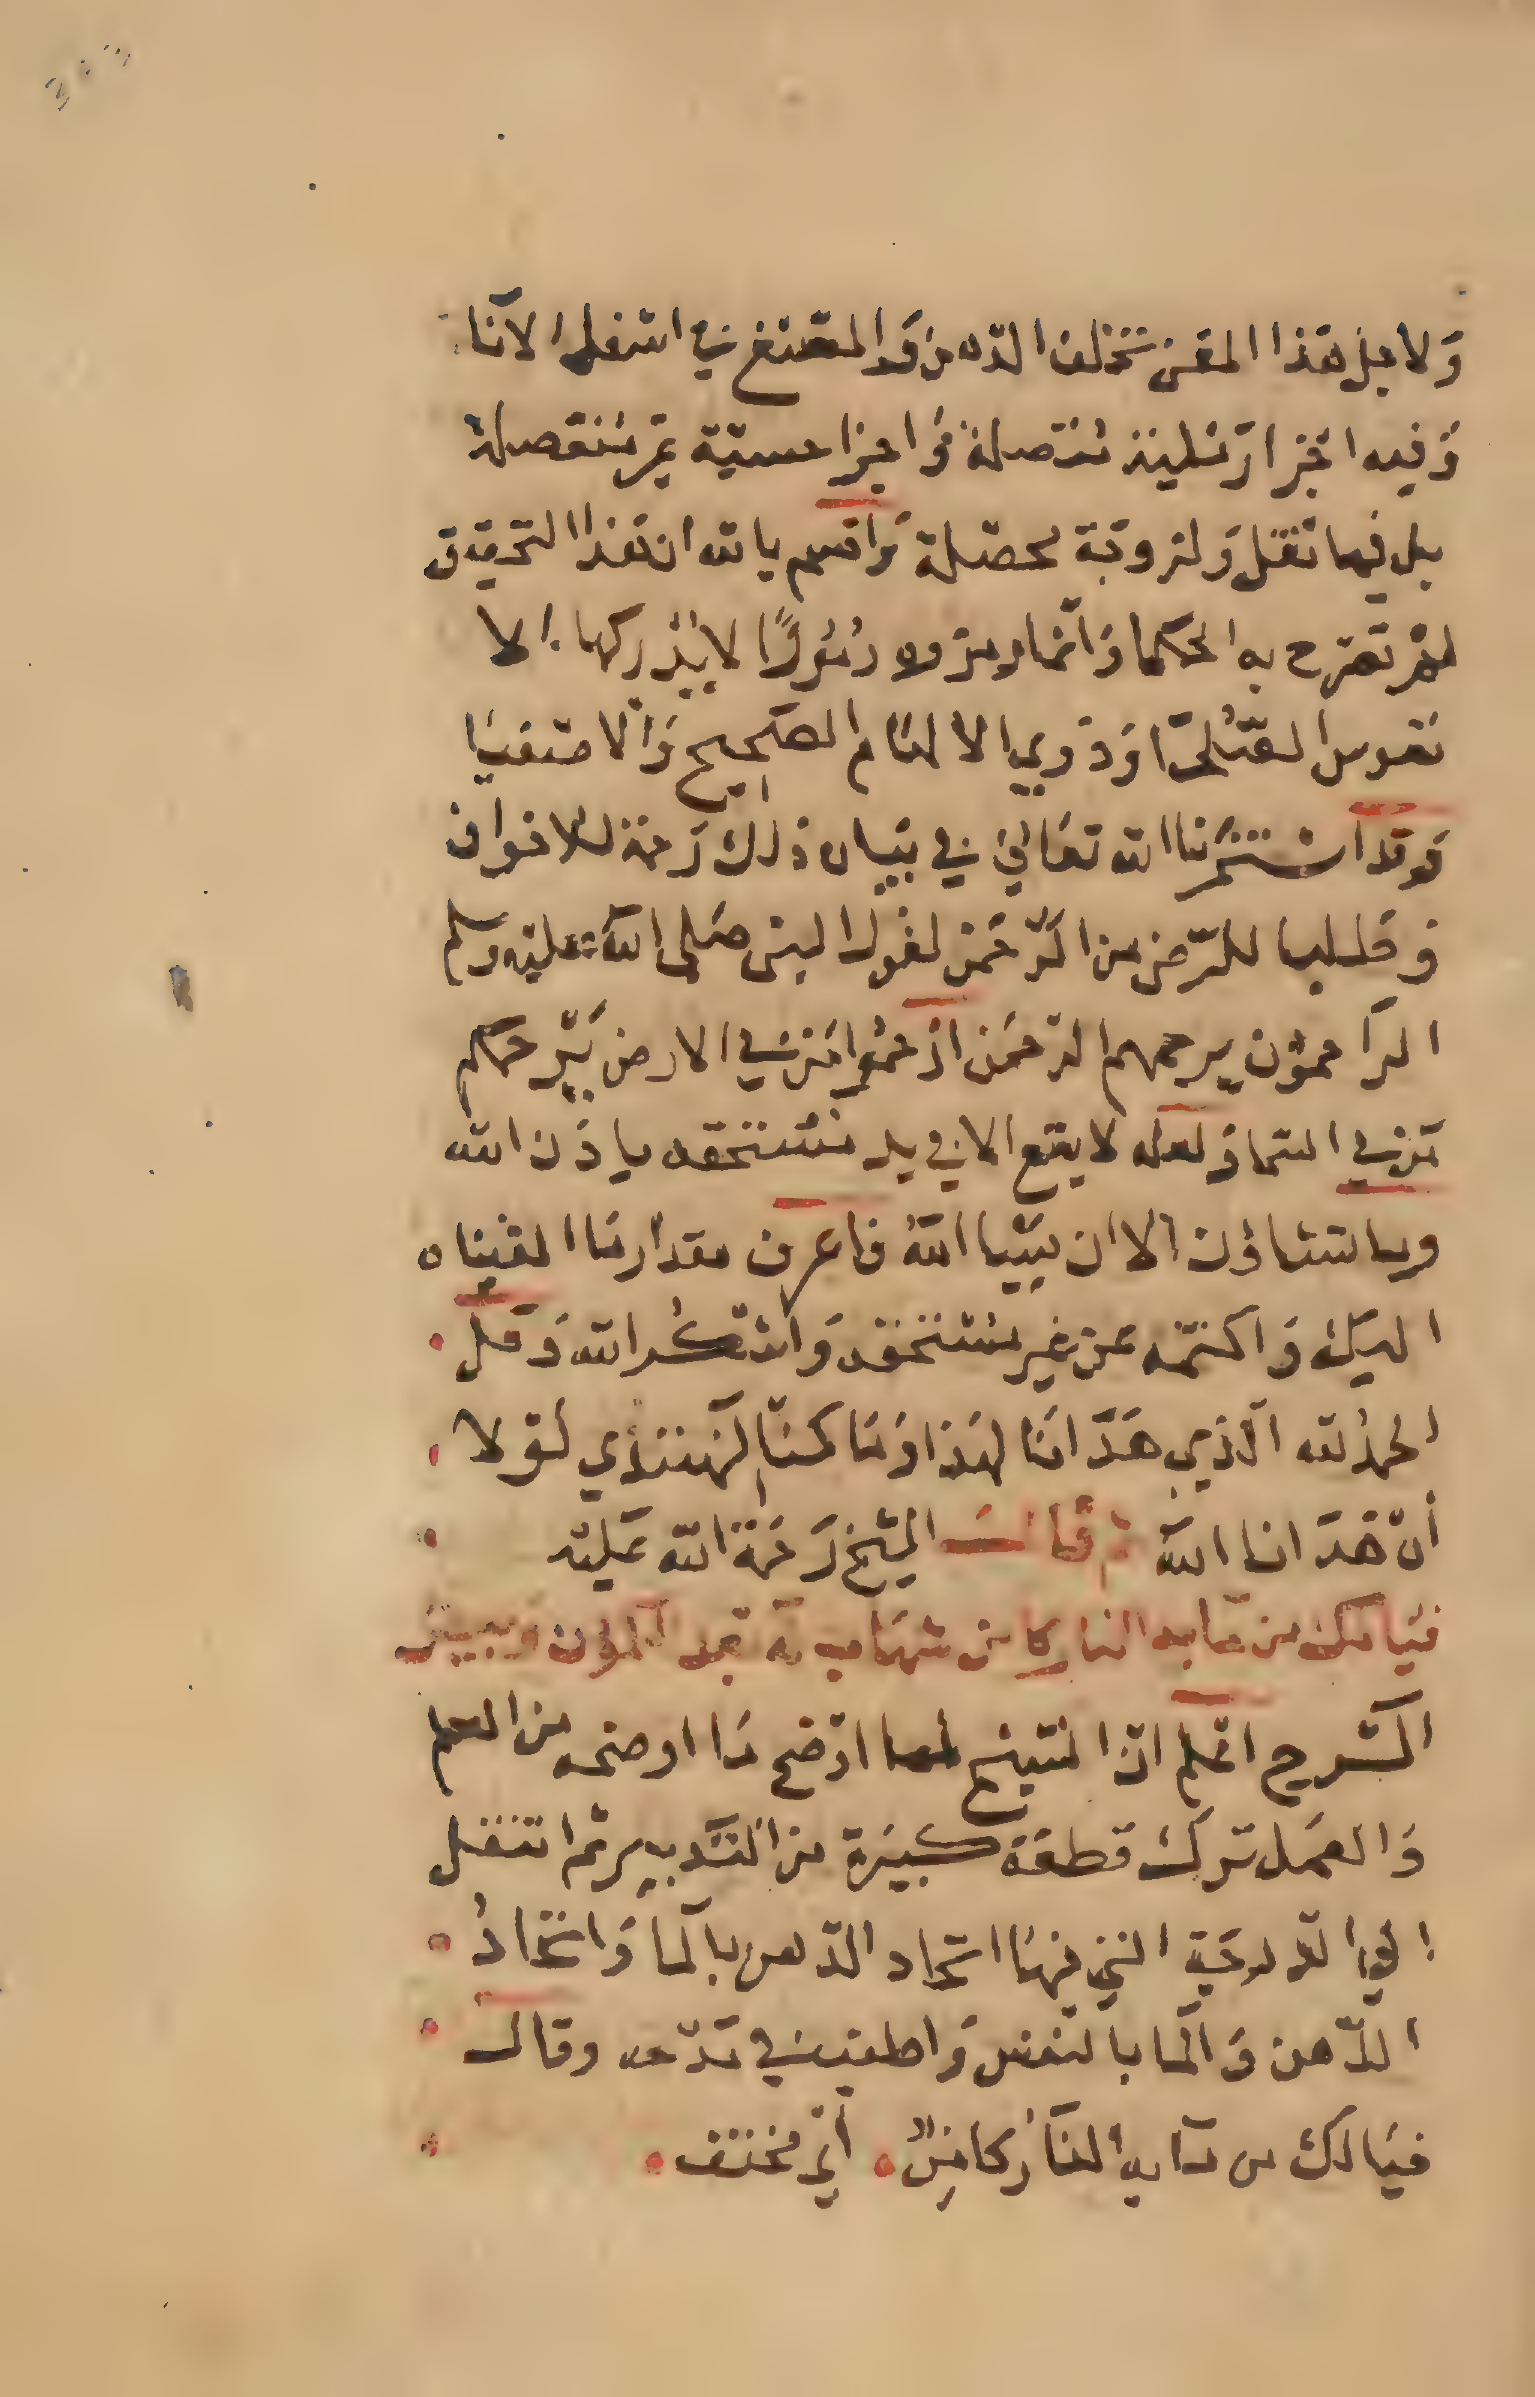 ولاجل هذا المعنى تتخلف الدهن وقد المصنع في اسفل الانا
وفيه اجزا رملية متصلة واجزا حسية غير منفصلة
بل فيها ثقل ولزوجة محصلة واقسم بالله ان هذا التحقيق
لم تصرح به الحكما وانما رمزوه رموزًا لا يدركها الا
نفوس العقلا وذوي الالهام الصحيح والاصفيا
وقد استخرنا الله تعالى في بيان ذلك رحمة للاخوان
وطلبا للرضى من الرحمن لقول النبى صلى الله عليه وسلم
الراحمون يرحمهم الرحمن ارحموا من في الارض يرحمكم
من في السما ولعله لا يقع الا في يد مستحقه باذن الله
وما تشاؤن الا ان يشا الله فاعرف مقدار ما القيناه
اليك واكتمه عن غير مستحقه واشكر الله وقل
الحمد لله الذي هدانا لهذا وما كنا لنهتدي لولا
أن هدانا الله ثم قال الشيخ رحمة الله عليه
فيالك من مابه النار كامن شهاب له بعد الكون وبيض
الشرح اعلم ان الشيخ لما اوضح ما اوضحه من العلم
والعمل ترك قطعة كبيرة من التدبير ثم انتقل
الى التي فيها اتحاد الدهن بالما واتحاد
الدهن والما بالنفس واطنب في مدحه وقال
فيالك من مآ به النار كامن أي مختف